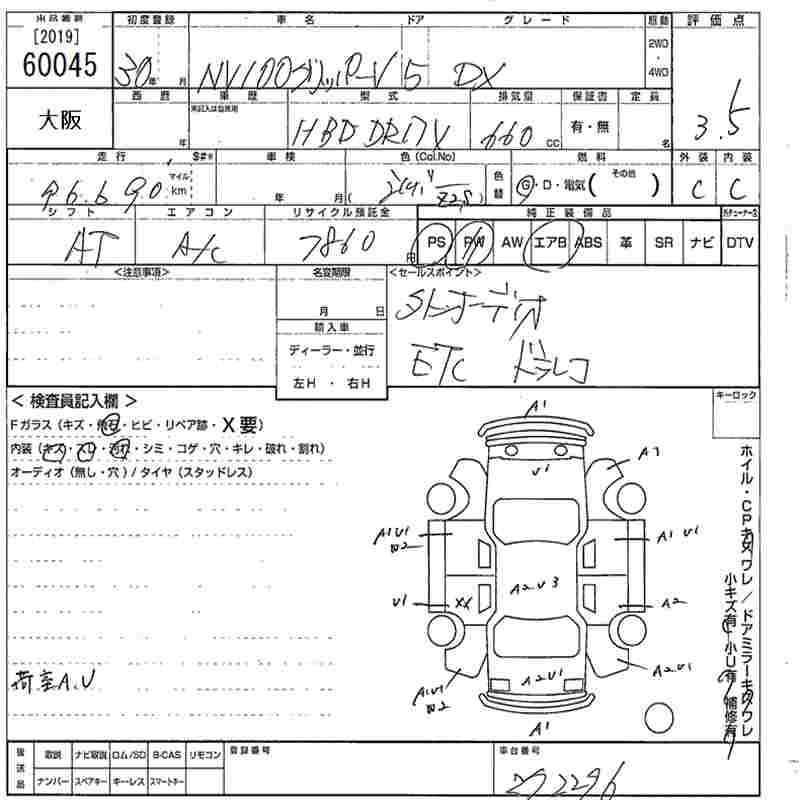 出品番号 初度登録 車名 ドア グレード 駆動 評価点
[2019]
60045
30年 月 NV100クリッパーV 5 DX 2WD・4WD 3.5
大阪
西暦 車歴 型式 排気量 保証書 定員
未記入は自家用
年 HBD DR17V 660 cc 有・無 名
走行 S#* 車検 色(Col.No) 燃料 外装 内装
96,690 マイル km 年 月( Z2S) 色替 G・D・電気( その他 ) C C
シフト エアコン リサイクル預託金 純正装備品
AT A/C 7860円 PS PW AW エアB ABS 革 SR ナビ DTV
<注意事項> 名変期限 <セールスポイント>
月 日
STオーディオ
輸入車
ディーラー・並行
ETC ドラレコ
左H・右H
<検査員記入欄> キーロック
Fガラス(キズ・飛石・ヒビ・リペア跡・X要)
内装(キズ・スレ・汚れ・シミ・コゲ・穴・キレ・破れ・割れ)
オーディオ(無し・穴)/タイヤ(スタッドレス)
A1
V1 A1
A1V1 W2 A1 V1
V1 XX A2V3 A2
A1V1 W2 A2V1 A2V1
A1
荷室A.V
ホイル・CPキズワレ/ドアミラーキズワレ
小キズ有 小U有 補修有
後送品 取説 ナビ取説 ロム/SD B-CAS リモコン 登録番号 車台番号
ナンバー スペアキー キーレス スマートキー 272296